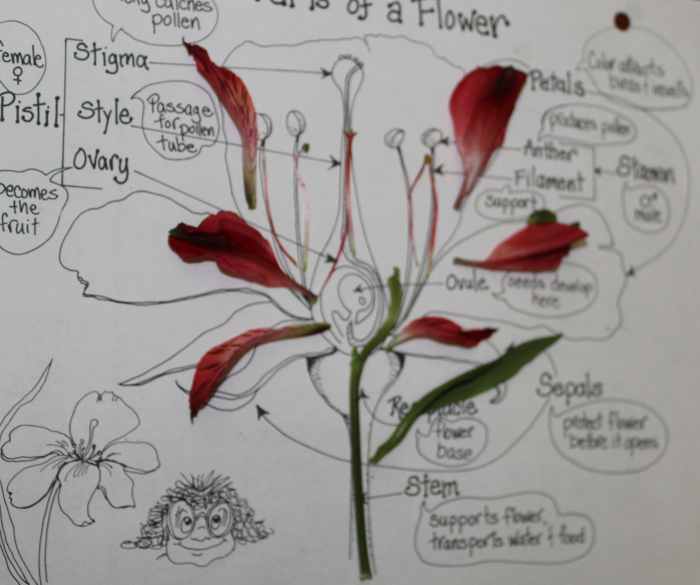 Parts of a Flower
catches
pollen
female
♀
Pistil
becomes
the
fruit
Stigma
Style
Ovary
Passage
for pollen
tube
Petals
Color attracts
produces pollen
Anther
Filament
Stamen
support
♂
male
Ovule
seeds develop
here
Sepals
protect flower
before it opens
Receptacle
flower
base
Stem
supports flower,
transports water & food